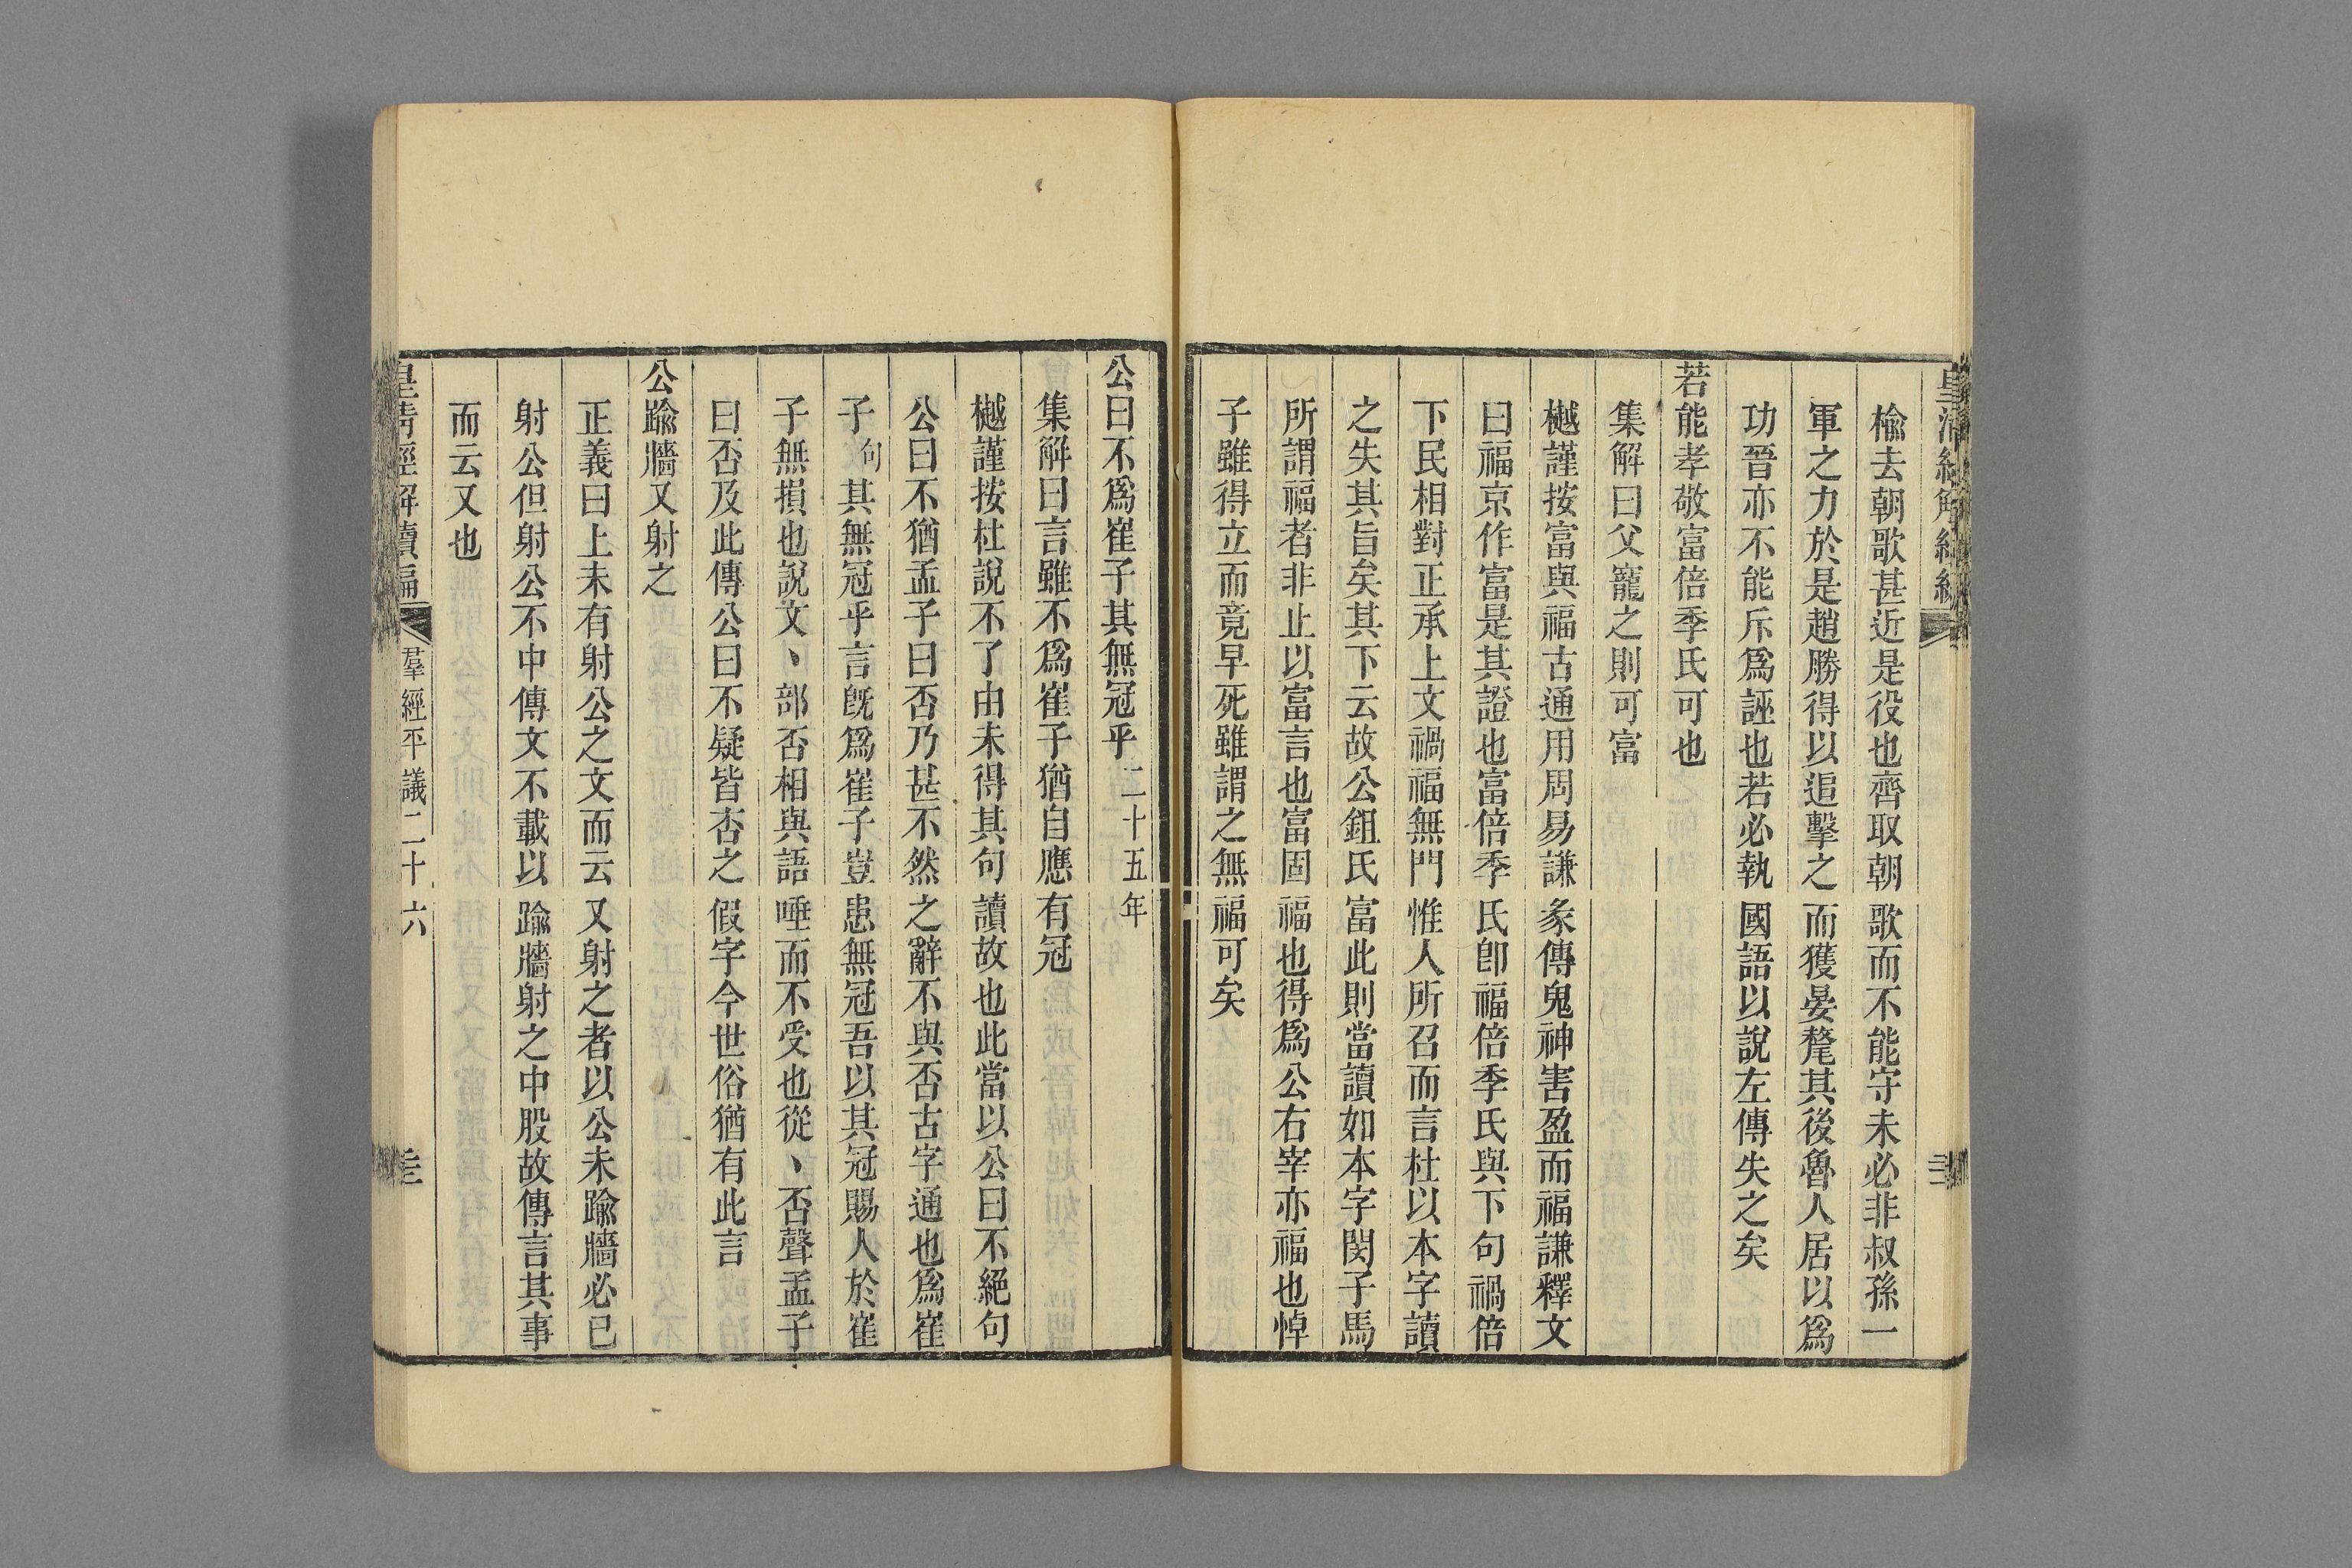 榆去朝歌甚近是役也齊取朝歌而不能守未必非叔孫一
軍之力於是趙勝得以追擊之而獲晏氂其後魯人居以爲
功晉亦不能斥爲誣也若必執國語以說左傳失之矣
若能孝敬富倍季氏可也
集解曰父寵之則可富
樾謹按富與福古通用周易謙彖傳鬼神害盈而福謙釋文
曰福京作富是其證也富倍季氏卽福倍季氏與下句禍倍
下民相對正承上文禍福無門惟人所召而言杜以本字讀
之失其旨矣其下云故公鉏氏富此則當讀如本字閔子馬
所謂福者非止以富言也富固福也得爲公右宰亦福也悼
子雖得立而竟早死雖謂之無福可矣
公曰不爲崔子其無冠乎二十五年
集解曰言雖不爲崔子猶自應有冠
樾謹按杜說不了由未得其句讀故也此當以公曰不絕句
公曰不猶孟子曰否乃甚不然之辭不與否古字通也爲崔
子句其無冠乎言旣爲崔子豈患無冠吾以其冠賜人於崔
子無損也說文丶部否相與語唾而不受也從丶否聲孟子
曰否及此傳公曰不疑皆否之假字今世俗猶有此言
公踰牆又射之
正義曰上未有射公之文而云又射之者以公未踰牆必已
射公但射公不中傳文不載以踰牆射之中股故傳言其事
而云又也
皇淸經解續編 羣經平議二十六